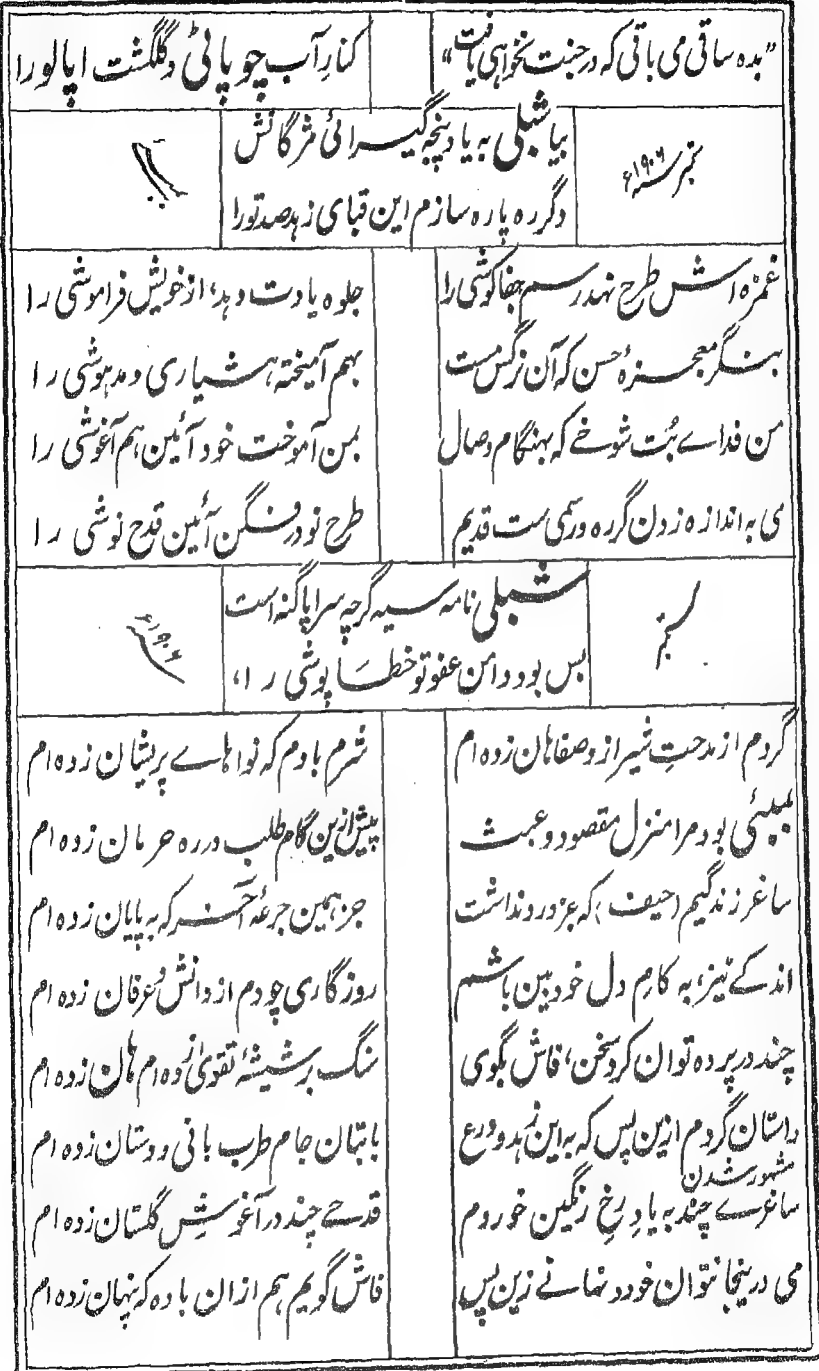 "بدہ ساقی می باقی کہ در جنت نخواہی یافت" کنارِ آب چوپاٹی و گلگشت اپالو را
بیا شبلی بہ یاد پنجہ گیرائی مژگانش
دگر رہ پارہ سازم این قبای زہد صد تو را
ستمبر سنہ ۱۹۰۶ء
غمزہ اش طرح نہد رسم جفا کوشی را جلوہ یادت دہد، از خویش فراموشی را
بنگر معجزۂ حسن کہ آن نرگس مست بہم آمیختہ ہشیاری و مدہوشی را
من فداے بُت شوخے کہ بہنگام وصال بمن آموخت خود آئین ہم آغوشی را
می بہ اندازہ زدن گرہ و رسمی ست قدیم طرح نو در فگن آئین قدح نوشی را
شبلی نامہ سیہ گرچہ سراپا گنہ است
بس بود دامن عفو تو خطا پوشی را،
۱۹۰۶ء
گردم از مدحتِ شیراز و صفاہان زدہ ام شرم بادم کہ نواہاے پریشان زدہ ام
بمبئی بود مرا منزل مقصود و عبث پیش ازین گام طلب در رہ حرمان زدہ ام
ساغر زندگیم (حیف) کہ جز درد نداشت جز ہمین جرعۂ آخر کہ بہ پایان زدہ ام
اندکے نیز، بہ کامِ دل خود بین باشم روزگاری چو دم از دانش و عرفان زدہ ام
چند در پردہ توان کرد سخن، فاش بگوی سنگ بر شیشۂ تقویٰ زدہ ام ہان زدہ ام
داستان گردم ازین پس کہ بہ این زہد و ورع با بتان جام طرب بانی و دستان زدہ ام
مشہور شدن
ساغرے چند بہ یادِ رخِ رنگین خوردم قدحے چند در آغوشِ گلستان زدہ ام
می درینجا نتوان خورد نہانے زین پس فاش گویم ہم ازان بادہ کہ پنہان زدہ ام